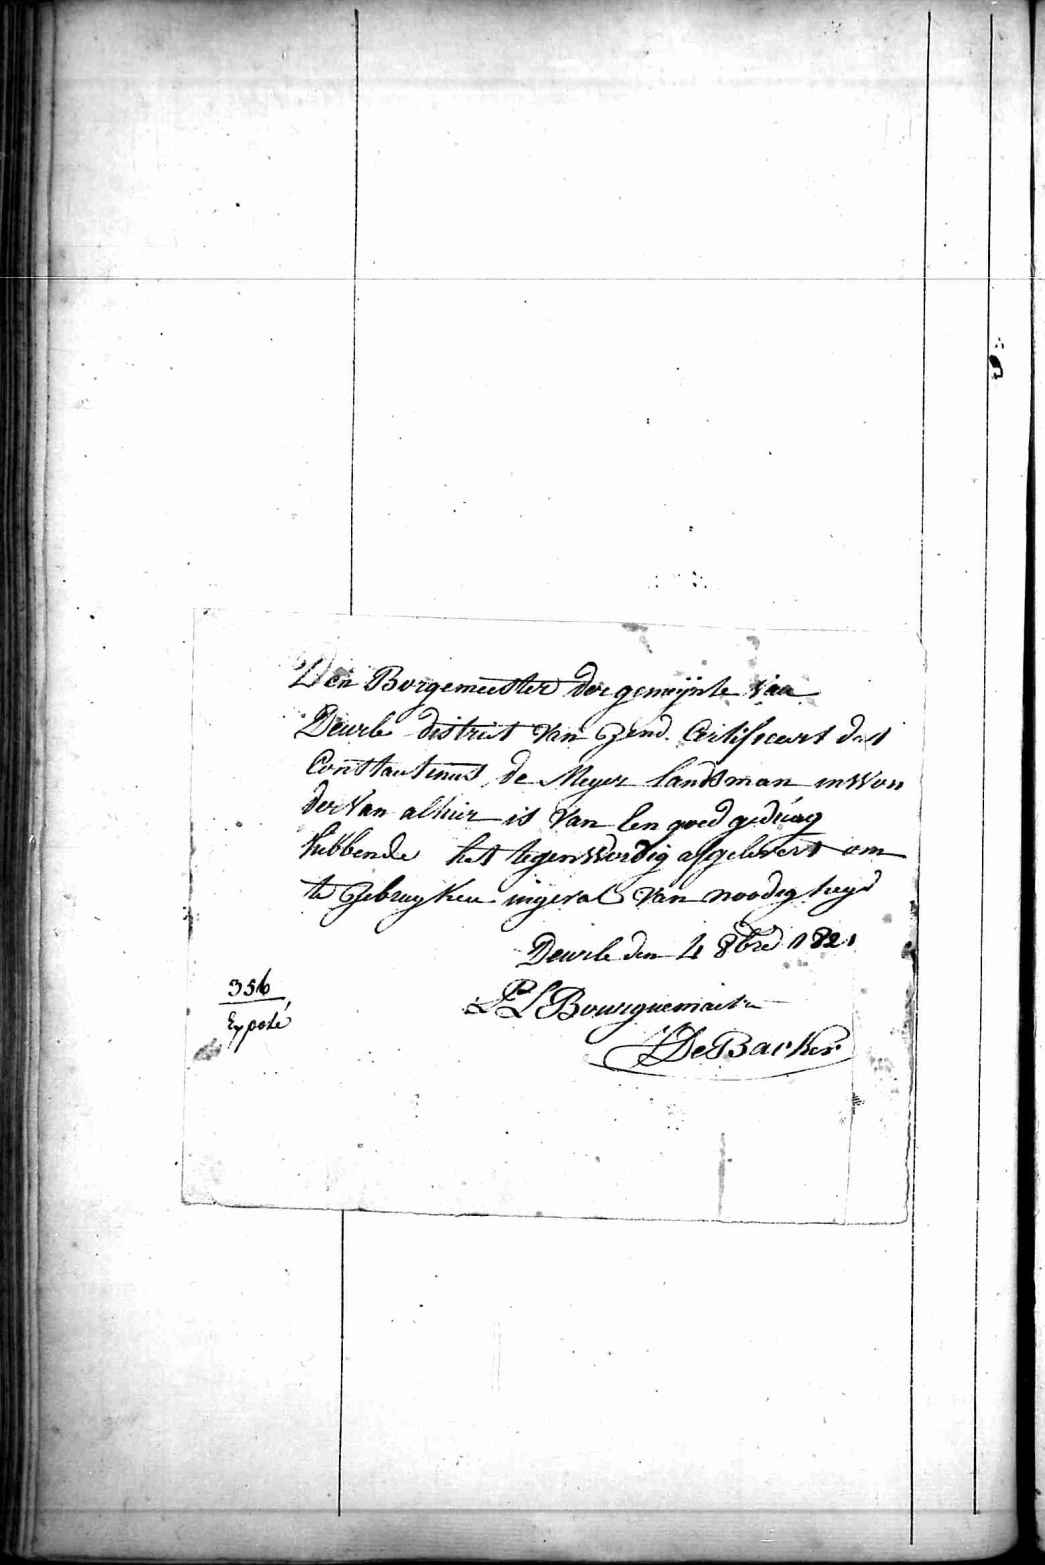 Den Borgemeester der gemeijnte van
Deurle district van Gend. Certifieert dat
Constantinus de Meyer landsman inwon
der van alhier is van Een goed gedrag
hebbende het tegenwordig afgelevert om
te gebruyken ingeval van noodigheyd
Deurle den 4 8bre 1821
Bourguemaitre
De Backer
356
Exposé